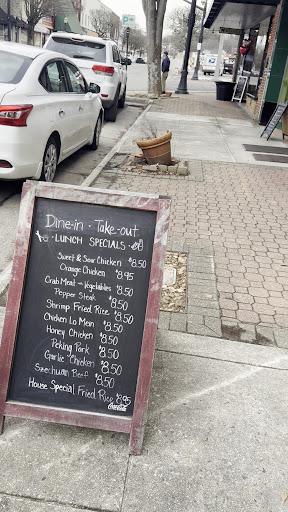 Dine-in · Take-out
· LUNCH SPECIALS ·
Sweet & Sour Chicken $8.50
Orange Chicken $8.95
Crab Meat w/ Vegetables $8.50
Pepper Steak $8.50
Shrimp Fried Rice $8.50
Chicken Lo Mein $8.50
Honey Chicken $8.50
Peking Pork $8.50
Garlic Chicken $8.50
Szechuan Beef $8.50
House Special Fried Rice $8.95
Coca-Cola